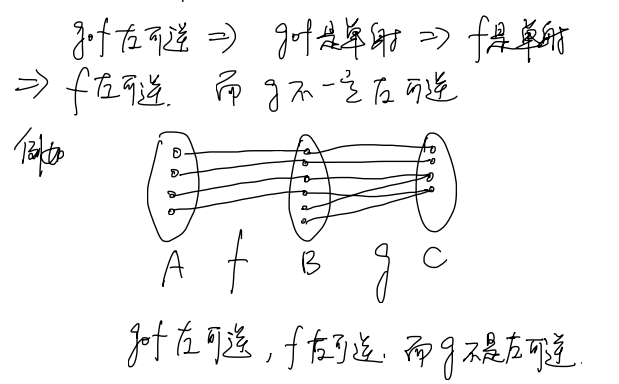 g∘f左可逆 ⇒ g∘f是单射 ⇒ f是单射
⇒ f左可逆. 而 g不一定左可逆
例如
A f B g C
g∘f左可逆, f左可逆. 而g不是左可逆.